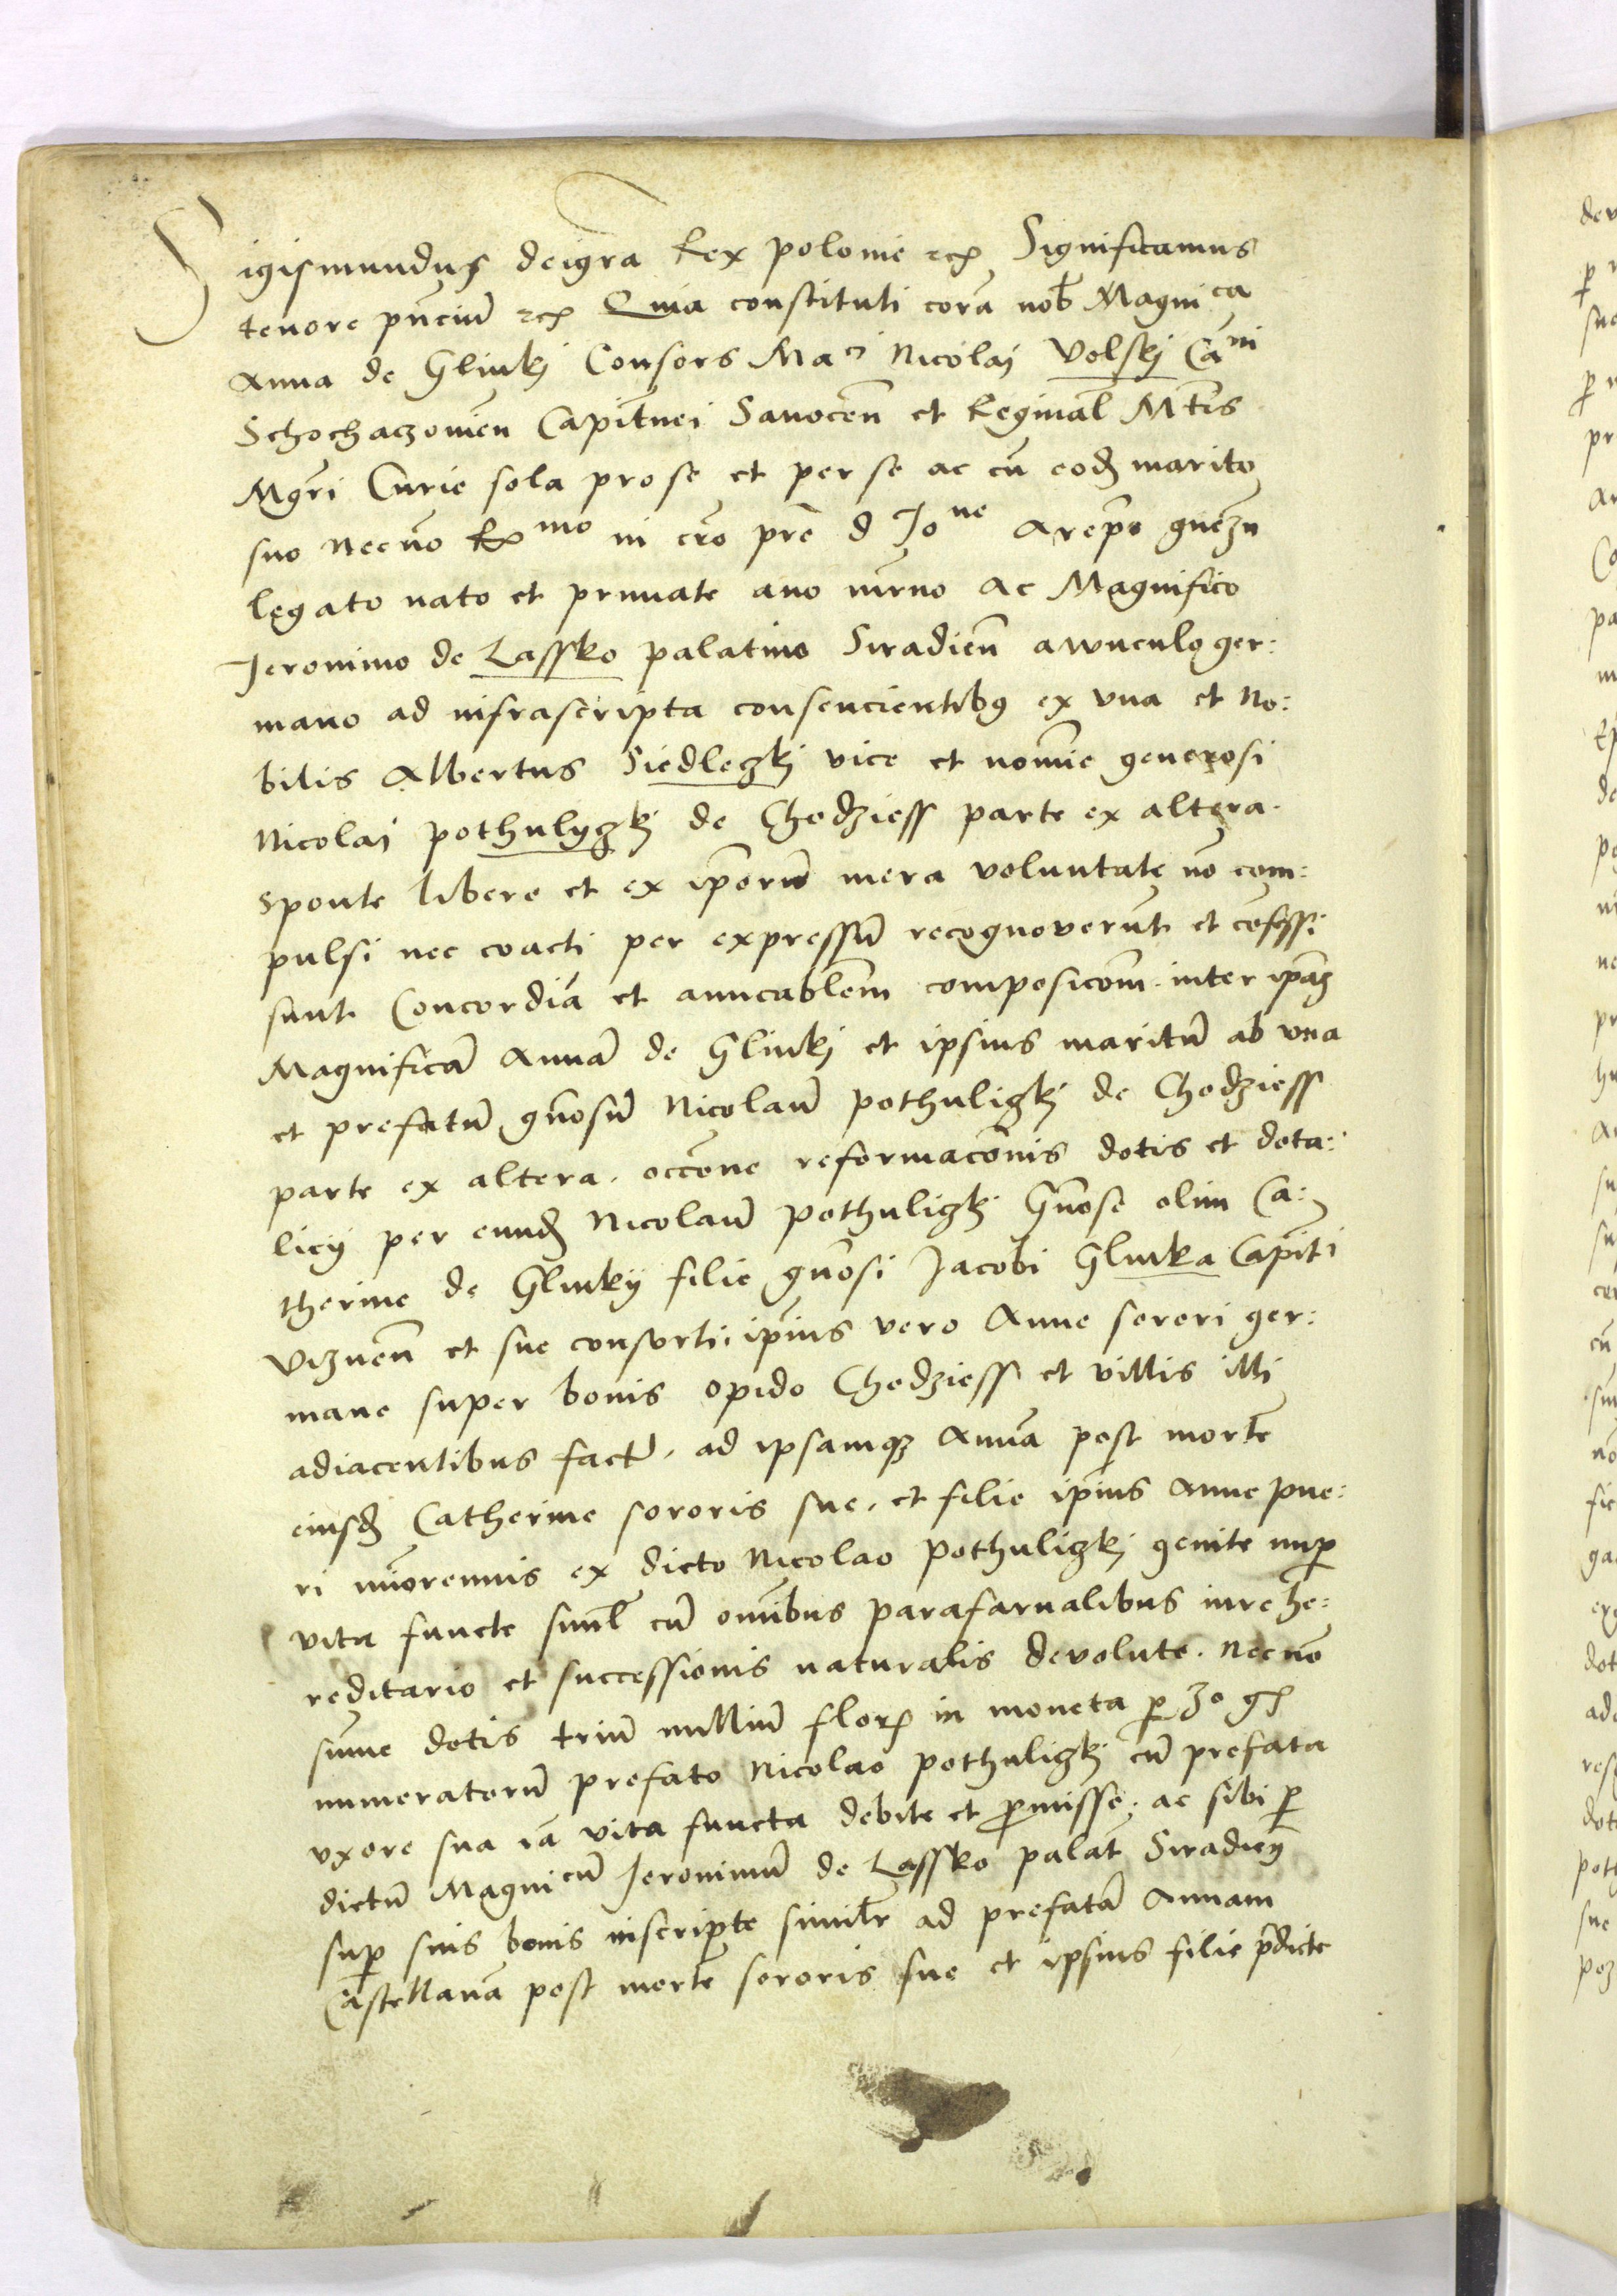 Sigismundus deigra Rex polonie etc Significamus
tenore pñciũ etc Quia constituti corã nob̃ Magnica
Anna de Glinkj Consors Maci Nicolaj Volskj Cãni
Schochaczovien̄ Capit̃nei Sanocen̄ et Reginal̃ Mt̃is
Mgr̃i Curie sola pro se et per se ac cũ eod̃ marito
suo Necnõ Rmo in cr̃o pr̃e d Jone Arep̃o gnezn̄
legato nato et primate avo mr̃no Ac Magnifico
Jeronimo de Lassko palatino Siradien̄ awunculo ger:
mano ad infrascripta consencientibus ex una et No:
bilis Albertus Siedleczkj vice et nomĩe generosi
Nicolaj pothulyczkj de Chodziess parte ex altera.
sponte libere et ex ip̃orũ mera voluntate nõ com:
pulsi nec coacti per expressũ recognoverũt et cõfessi
sunt Concordiã et amicabl̃em composicõm inter ipãs
Magnificã Annã de Glinkj et ipsius maritũ ab una
et prefatũ gñosũ Nicolaũ pothuliczkj de Chodziess
parte ex altera. occõne reformacõnis dotis et dota:
licij per eund̃ Nicolaũ pothuliczkj Gñose olim Ca:
therine de Glinkij filie gñosi Jacobi Glinka Capit̃i
Viznen̄ et sue consorti ip̃ius vero Anne sorori ger:
mane super bonis opido Chodziess et villis illi
adiacentibus fact̃. ad ipsamq₃ Annã post mortẽ
eiusd̃ Catherine sororis sue. et filie ip̃ius Anne pue:
ri mĩorennis ex dicto Nicolao pothuliczkj genite nup̱
vita functe simul̃ cũ om̃ibus parafarnalibus iure he:
reditario et successionis naturalis devolute. Necnõ
sum̃e dotis triũ milliũ flor̃ in moneta p̱ 30 gr̃
numeratorũ prefato Nicolao pothuliczkj cũ prefata
uxore sua iã vita functa debite et p̱misse. ac sibi p̱
dictũ Magnicũ Jeronimũ de Lassko palat̃ Siradien̄
sup̱ suis bonis inscripte similr̃ ad prefatã Annam
Castellanã post mortẽ sororis sue et ipsius filie p̃dicte